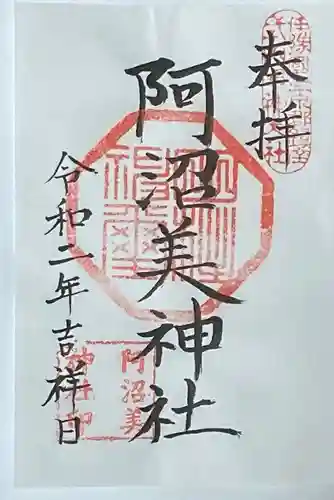 奉拝
阿沼美神社
令和二年吉祥日
阿沼美